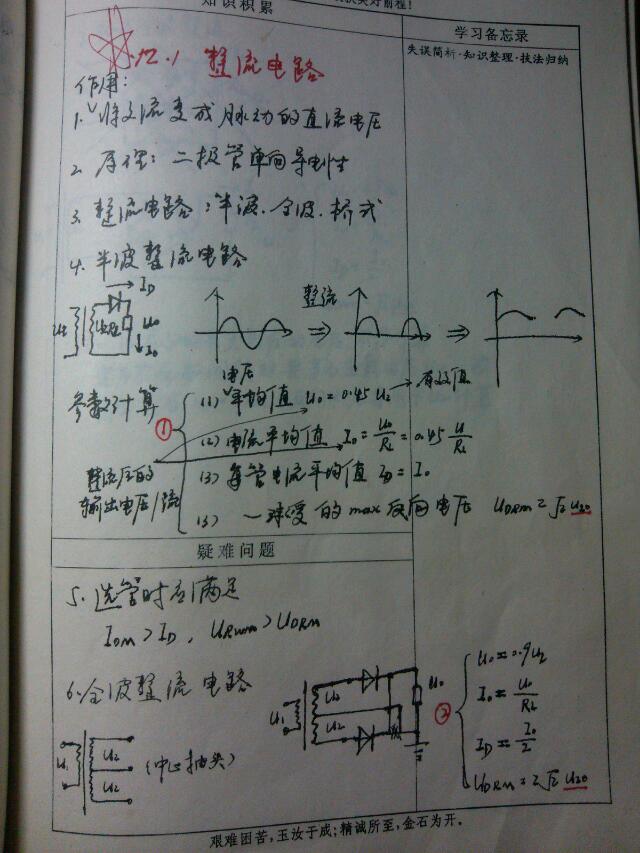 知识积累
学习备忘录
失误简析·知识整理·技法归纳
12.1 整流电路
作用:
1. 将交流变成脉动的直流电压
2. 原理: 二极管单向导电性
3. 整流电路: 半波. 全波. 桥式
4. 半波整流电路
I_D
U_o
I_o
整流
参数计算
①
(1) 电压平均值 U_o = 0.45 U_2 → 有效值
(2) 电流平均值 I_o = U_o/R_L = 0.45 U/R_L
(3) 每管电流平均值 I_D = I_o
(3) 一 承受的max反向电压 U_DRM = √2 U_20
整流后的
输出电压/流
疑难问题
5. 选管时应满足
I_DM > I_D, U_RWM > U_DRM
6. 全波整流电路
U_1
U_2
U_2
(中心抽头)
U_1
U_2
U_2
U_o
②
U_o = 0.9U_2
I_o = U_o/R_L
I_D = I_o/2
U_DRM = 2√2 U_20
艰难困苦,玉汝于成;精诚所至,金石为开。